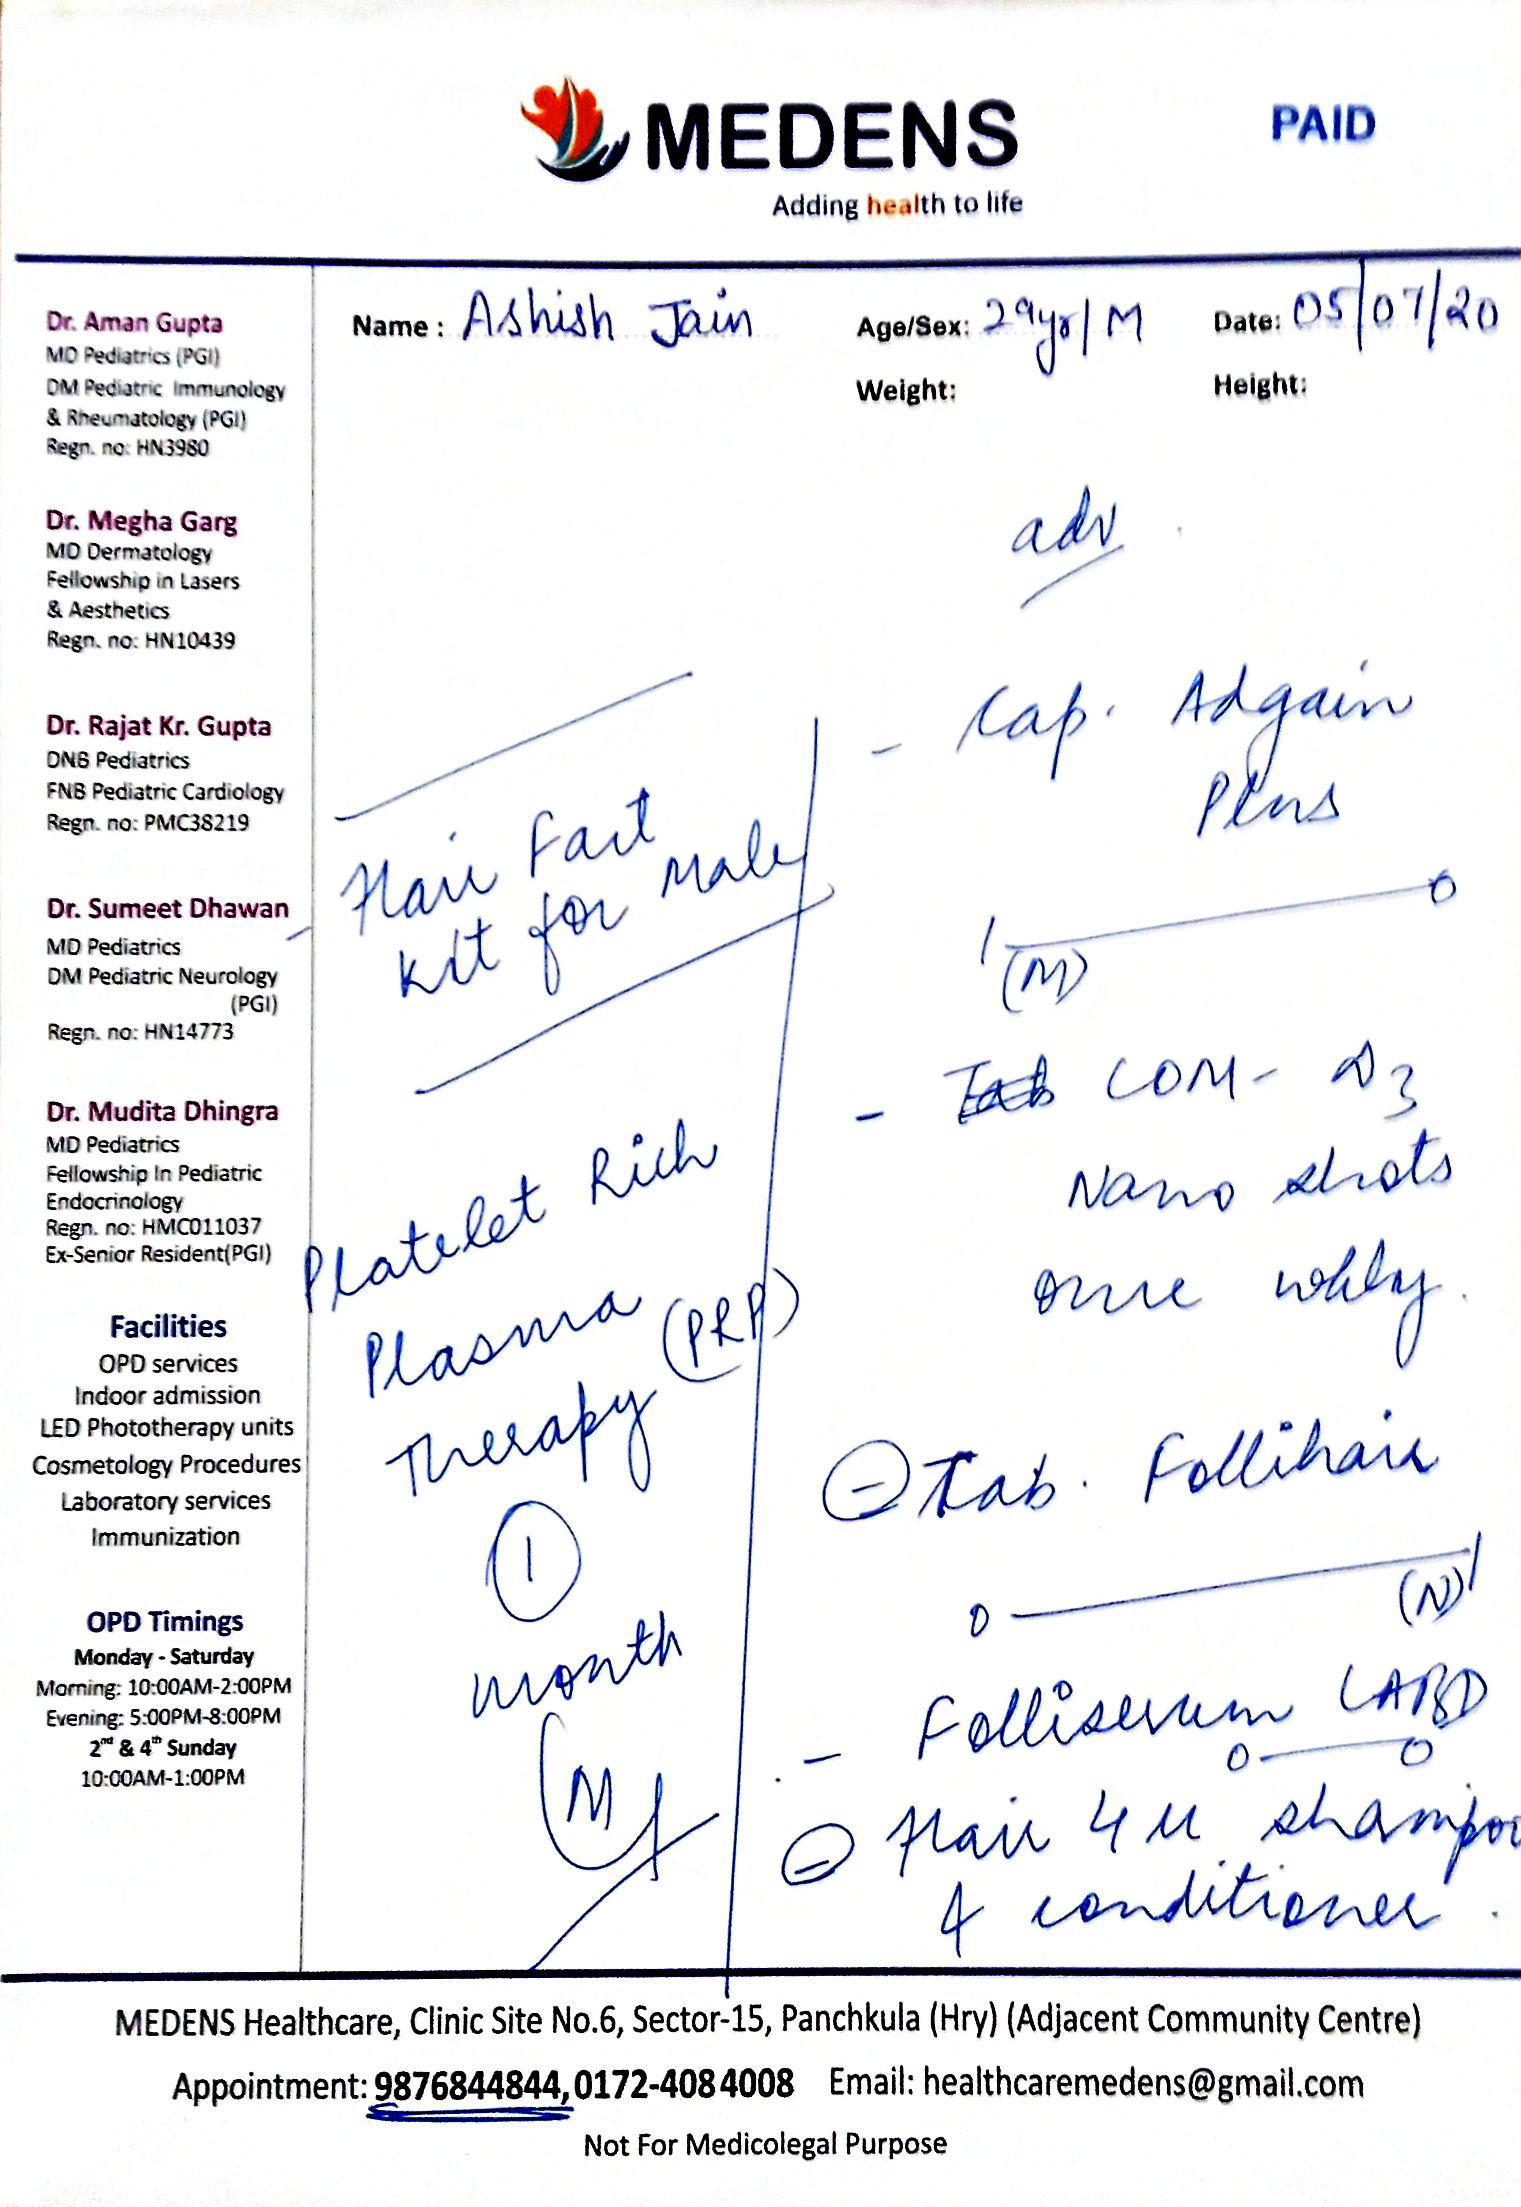 MEDENS
PAID
Adding health to life
Name : Ashish Jain Age/Sex: 29yr/M Date: 05/07/20
Weight: Height:
Dr. Aman Gupta
MD Pediatrics (PGI)
DM Pediatric Immunology
& Rheumatology (PGI)
Regn. no: HN3980
Dr. Megha Garg
MD Dermatology
Fellowship in Lasers
& Aesthetics
Regn. no: HN10439
Dr. Rajat Kr. Gupta
DNB Pediatrics
FNB Pediatric Cardiology
Regn. no: PMC38219
Dr. Sumeet Dhawan
MD Pediatrics
DM Pediatric Neurology
(PGI)
Regn. no: HN14773
Dr. Mudita Dhingra
MD Pediatrics
Fellowship In Pediatric
Endocrinology
Regn. no: HMC011037
Ex-Senior Resident(PGI)
Facilities
OPD services
Indoor admission
LED Phototherapy units
Cosmetology Procedures
Laboratory services
Immunization
OPD Timings
Monday - Saturday
Morning: 10:00AM-2:00PM
Evening: 5:00PM-8:00PM
2nd & 4th Sunday
10:00AM-1:00PM
- Hair Fact
kit for Male
Platelet Rich
Plasma (PRP)
Therapy
1
month
adv
- Cap. Adgain
Plus
1 — 0
(M)
- Tab COM - D3
Nano shots
once wkly.
- Tab. Follihair
0 — 1
(N)
- Folliserum LABD
0 — 0
- Hair 4 U shampoo
& conditioner.
MEDENS Healthcare, Clinic Site No.6, Sector-15, Panchkula (Hry) (Adjacent Community Centre)
Appointment: 9876844844, 0172-4084008 Email: healthcaremedens@gmail.com
Not For Medicolegal Purpose